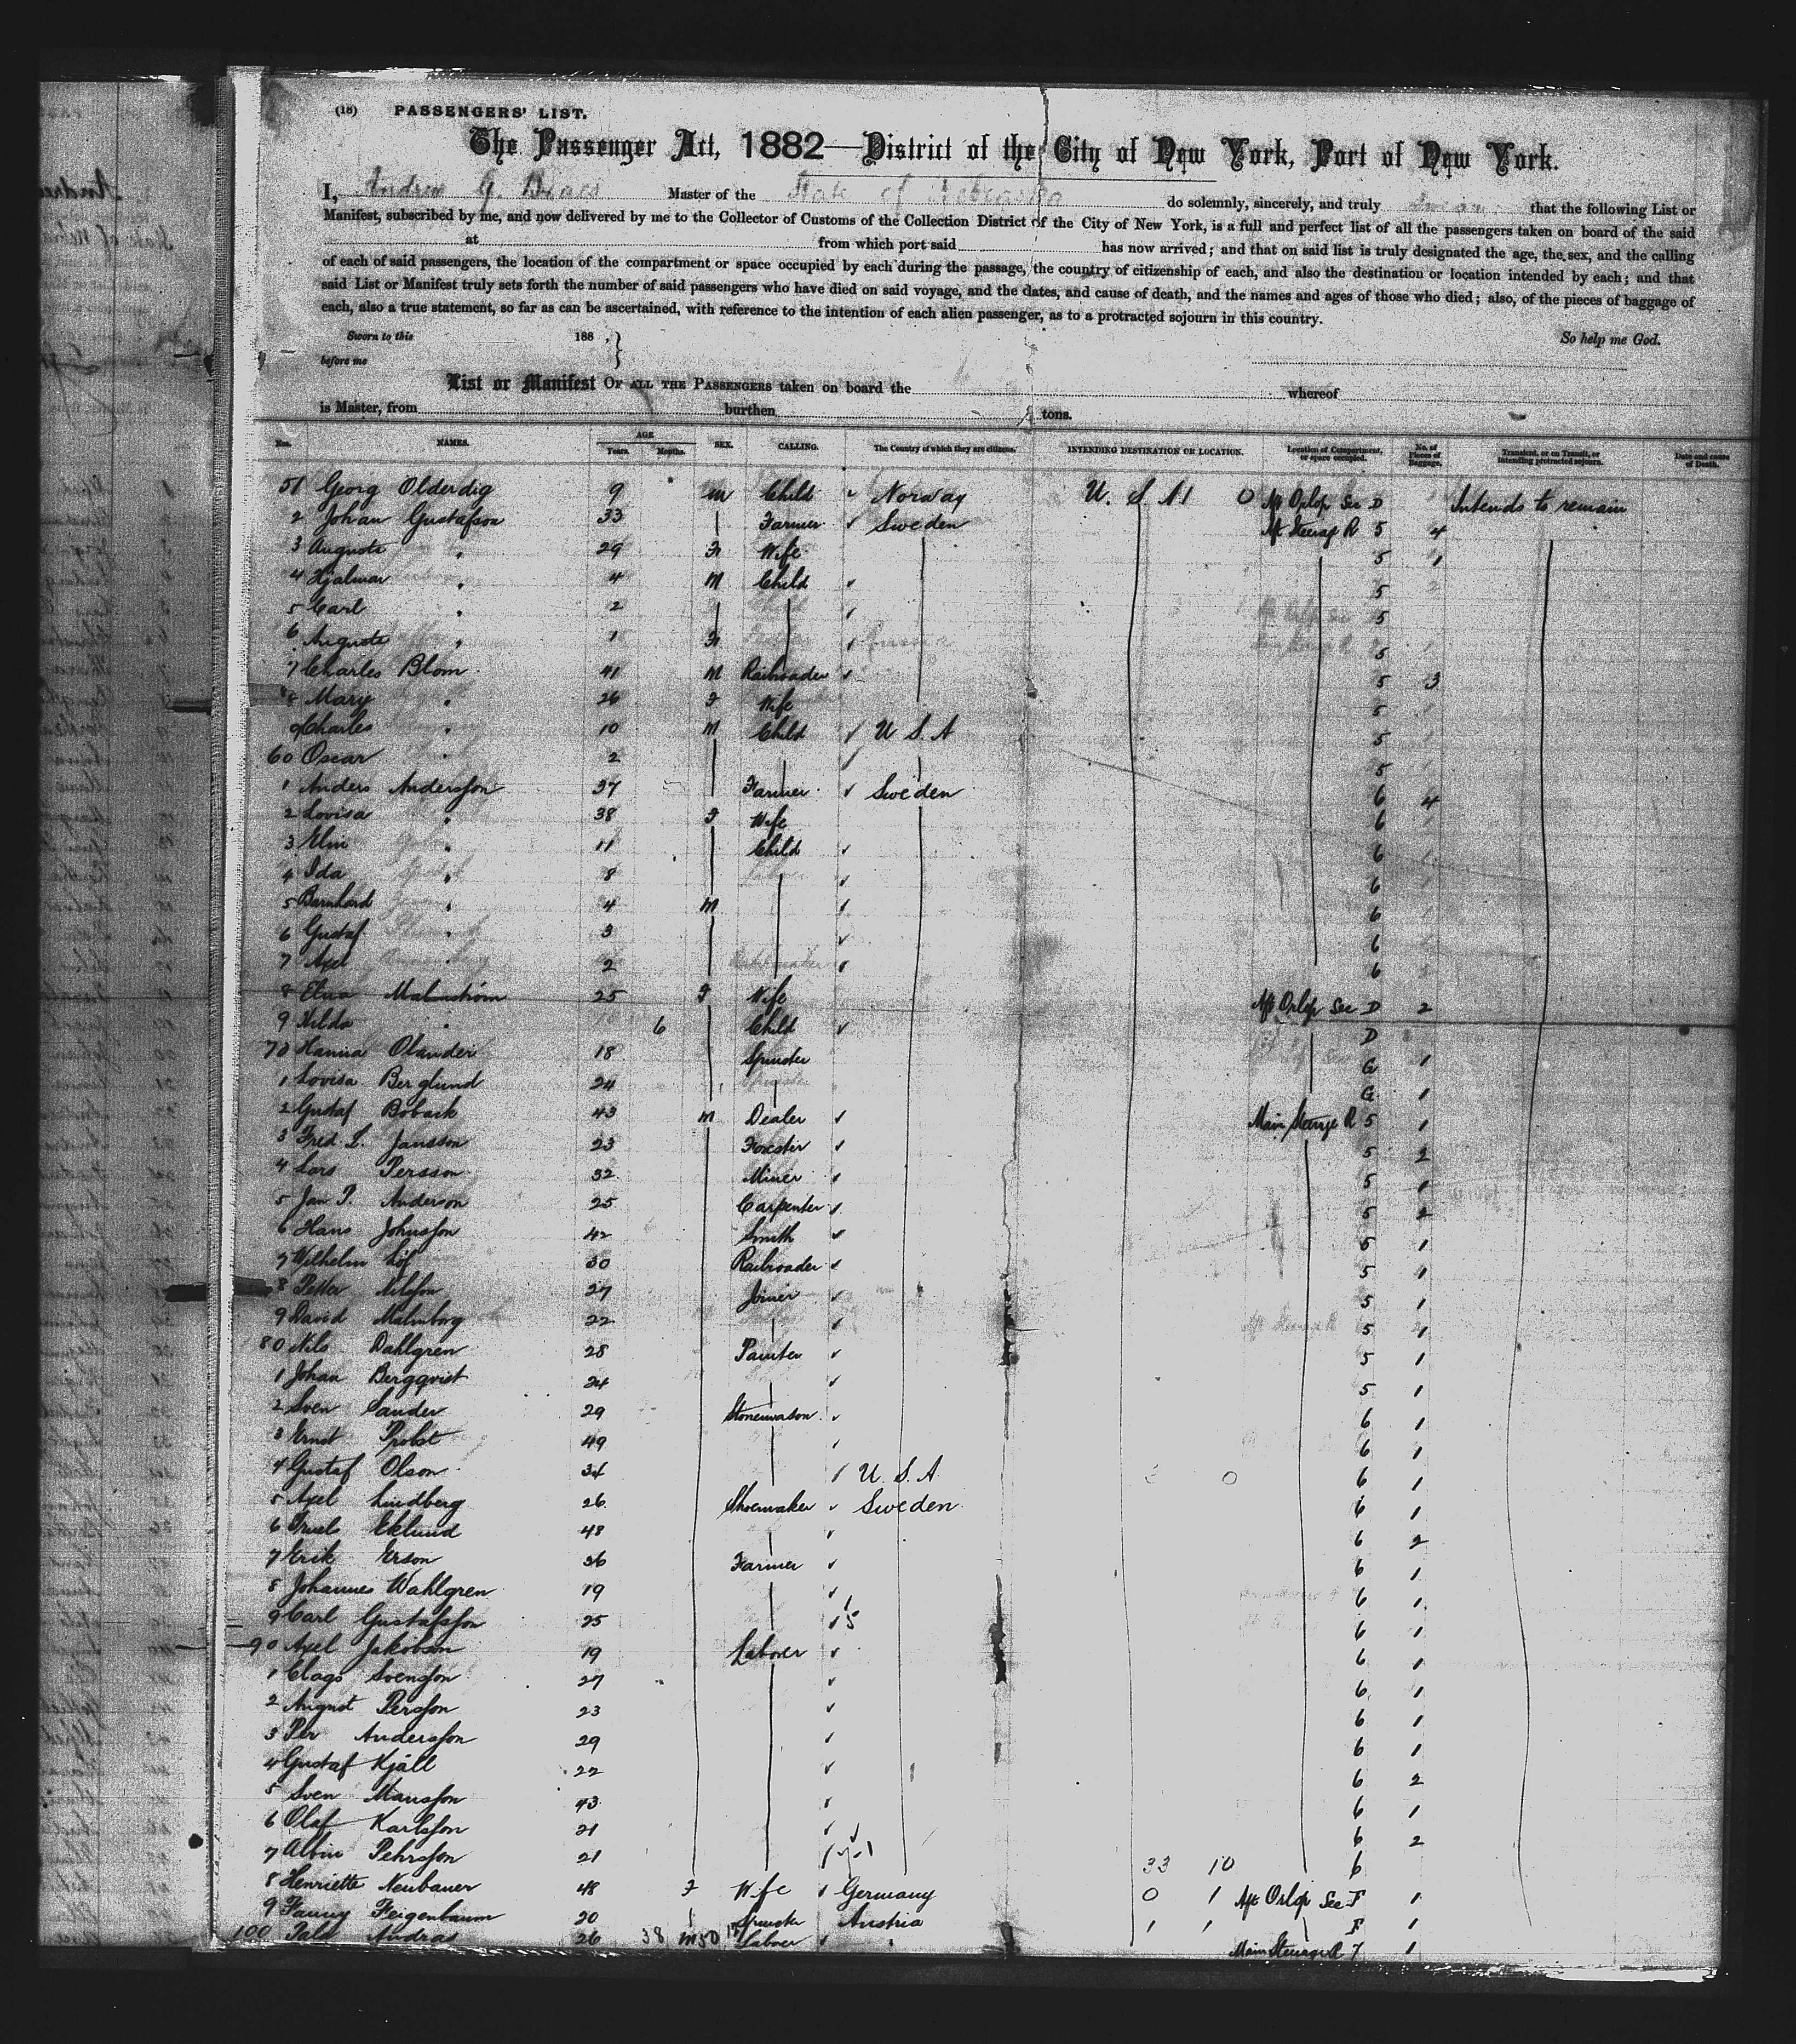 (18) PASSENGERS' LIST.
The Passenger Act, 1882—District of the City of New York, Port of New York.
I, Andrew G. Master of the State of Nebraska do solemnly, sincerely, and truly swear that the following List or
Manifest, subscribed by me, and now delivered by me to the Collector of Customs of the Collection District of the City of New York, is a full and perfect list of all the passengers taken on board of the said
at from which port said has now arrived; and that on said list is truly designated the age, the sex, and the calling
of each of said passengers, the location of the compartment or space occupied by each during the passage, the country of citizenship of each, and also the destination or location intended by each; and that
said List or Manifest truly sets forth the number of said passengers who have died on said voyage, and the dates, and cause of death, and the names and ages of those who died; also, of the pieces of baggage of
each, also a true statement, so far as can be ascertained, with reference to the intention of each alien passenger, as to a protracted sojourn in this country.
Sworn to this 188 . } So help me God.
before me
List or Manifest OF ALL THE PASSENGERS taken on board the whereof
is Master, from burthen tons.
Nos. NAMES. AGE Years. Months. SEX. CALLING. The Country of which they are citizens. INTENDING DESTINATION OR LOCATION. Location of Compartment, or space occupied. No. of Pieces of Baggage. Transient, or on Transit, or intending protracted sojourn. Date and cause of Death.
51 Georg Olderdig 9 m Child Norway U. S. A 0 Aft Orlop Sec D Intends to remain
2 Johan Gustafson 33 Farmer Sweden Aft Steerag R 5 4
3 Augusta " 29 F Wife 5 1
4 Hjalmar " 4 M Child 5
5 Carl " 2 5
6 Augusta " 1 F 5
7 Charles Blom 41 M Railroader 5 3
8 Mary " 26 F Wife 5
9 Charles " 10 M Child U S. A 5
60 Oscar 2 5
1 Anders Andersson 37 Farmer Sweden 6 4
2 Lovisa " 38 F Wife 6
3 Elin " 11 Child 6
4 Ida " 8 6
5 Barnhard " 4 M 6
6 Gustaf " 3 6
7 Axel " 2 6
8 Elna Malmström 25 F Wife Aft Orlop Sec D 2
9 Hilda " 6 Child D
70 Hanna Olander 18 Spinster G 1
1 Lovisa Berglund 24 G 1
2 Gustaf Boback 43 m Dealer Main Steerage R 5 1
3 Fred L. Jansson 23 Forester 5 2
4 Lars Persson 32 Miner 5 1
5 Jan P. Anderson 25 Carpenter 5 2
6 Hans Johnsson 42 Smith 5 1
7 Wilhelm Löf 30 Railroader 5 1
8 Petter Nilsson 27 Joiner 5 1
9 David Malmborg 22 5 1
80 Nils Dahlgren 28 Painter 5 1
1 Johan Bergqvist 24 5 1
2 Sven Sander 29 Stonemason 6 1
3 Ernst Probst 49 6 1
4 Gustaf Olson 34 U. S. A. 0 6 1
5 Axel Lindberg 26 Shoemaker Sweden 6 1
6 Truels Eklund 48 6 2
7 Erik Erson 36 Farmer 6 1
8 Johannes Wahlgren 19 6 1
9 Carl Gustafsson 25 6 1
90 Axel Jakobson 19 Laborer 6 1
1 Clags Svensson 27 6 1
2 August Persson 23 6 1
3 Per Andersson 29 6 1
4 Gustaf Kjäll 22 6 2
5 Sven Mansson 43 6 1
6 Olaf Karlsson 21 6 2
7 Albin Pehrsson 21 33 10 6
8 Henriette Neubauer 48 F Wife Germany 0 1 Aft Orlop Sec F 1
9 Fanny Feigenbaum 20 Spinster Austria 1 1 F 1
100 Andras 26 38 m 50 Labner " Main Steerage R 7 1